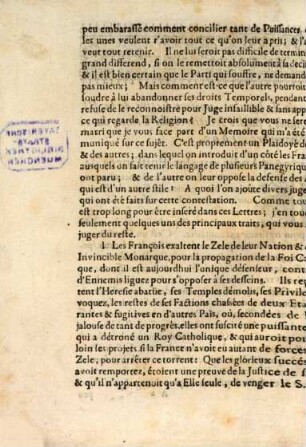 peu embarassé comment concilier tant de Puissances,
les unes veulent r'avoir tout ce qu'on leur a pris ; & l'a
veut tout retenir. Il ne lui seroit pas difficile de termine
grand differend, si on le remettoit absolument à sa deci
& il est bien certain que le Parti qui souffre, ne demande
pas mieux ; Mais comment est-ce que l'autre pourroit
soudre à lui abandonner ses droits Temporels, pendant
refuse de le reconnoistre pour Juge infaillible & sans appel
ce qui regarde la Religion ? Je crois que vous ne serez
marri que je vous face part d'un Memoire qui m'a été
muniqué sur ce sujet. C'est proprement un Plaidoyé d
& des autres ; dans lequel on introduit d'un côté les Fran
ausquels on fait tenir le langage de plusieurs Panegyriqu
ont paru ; & de l'autre on leur oppose la defense des A
qui est d'un autre stile : A quoi l'on ajoûte divers juge
qui ont été faits sur cette contestation. Comme tou
est trop long pour être inséré dans ces Lettres ; j'en tou
seulement quelques uns des principaux traits, qui vous
juger du reste.
I. Les François exaltent le Zele de leur Nation & d
Invincible Monarque, pour la propagation de la Foi Ca
que, dont il est aujourdhui l'unique défenseur, cont
d'Ennemis liguez pours s'opposer à ses desseins. Ils rep
tent l'Heresie abatüe, ses Temples démolis, ses Privile
voquez, les restes de ses Factions chassées de deux Eta
rantes & fugitives en d'autres Païs, où, secondées de l
jalouse de tant de progrès, elles ont suscité une puissante
qui a détroné un Roy Catholique, & qui auroit pou
loin ses projets si la France n'avoit eu autant de forces
Zele, pour arrêter ce torrent : Que les glorieux succés
avoit remportez, étoient une preuve de la Justice de s
& qu'il n'appartenoit qu'à Elle seule, de venger le S.
BAYERISCHE
STAATS-
BIBLIOTHEK
MUENCHEN